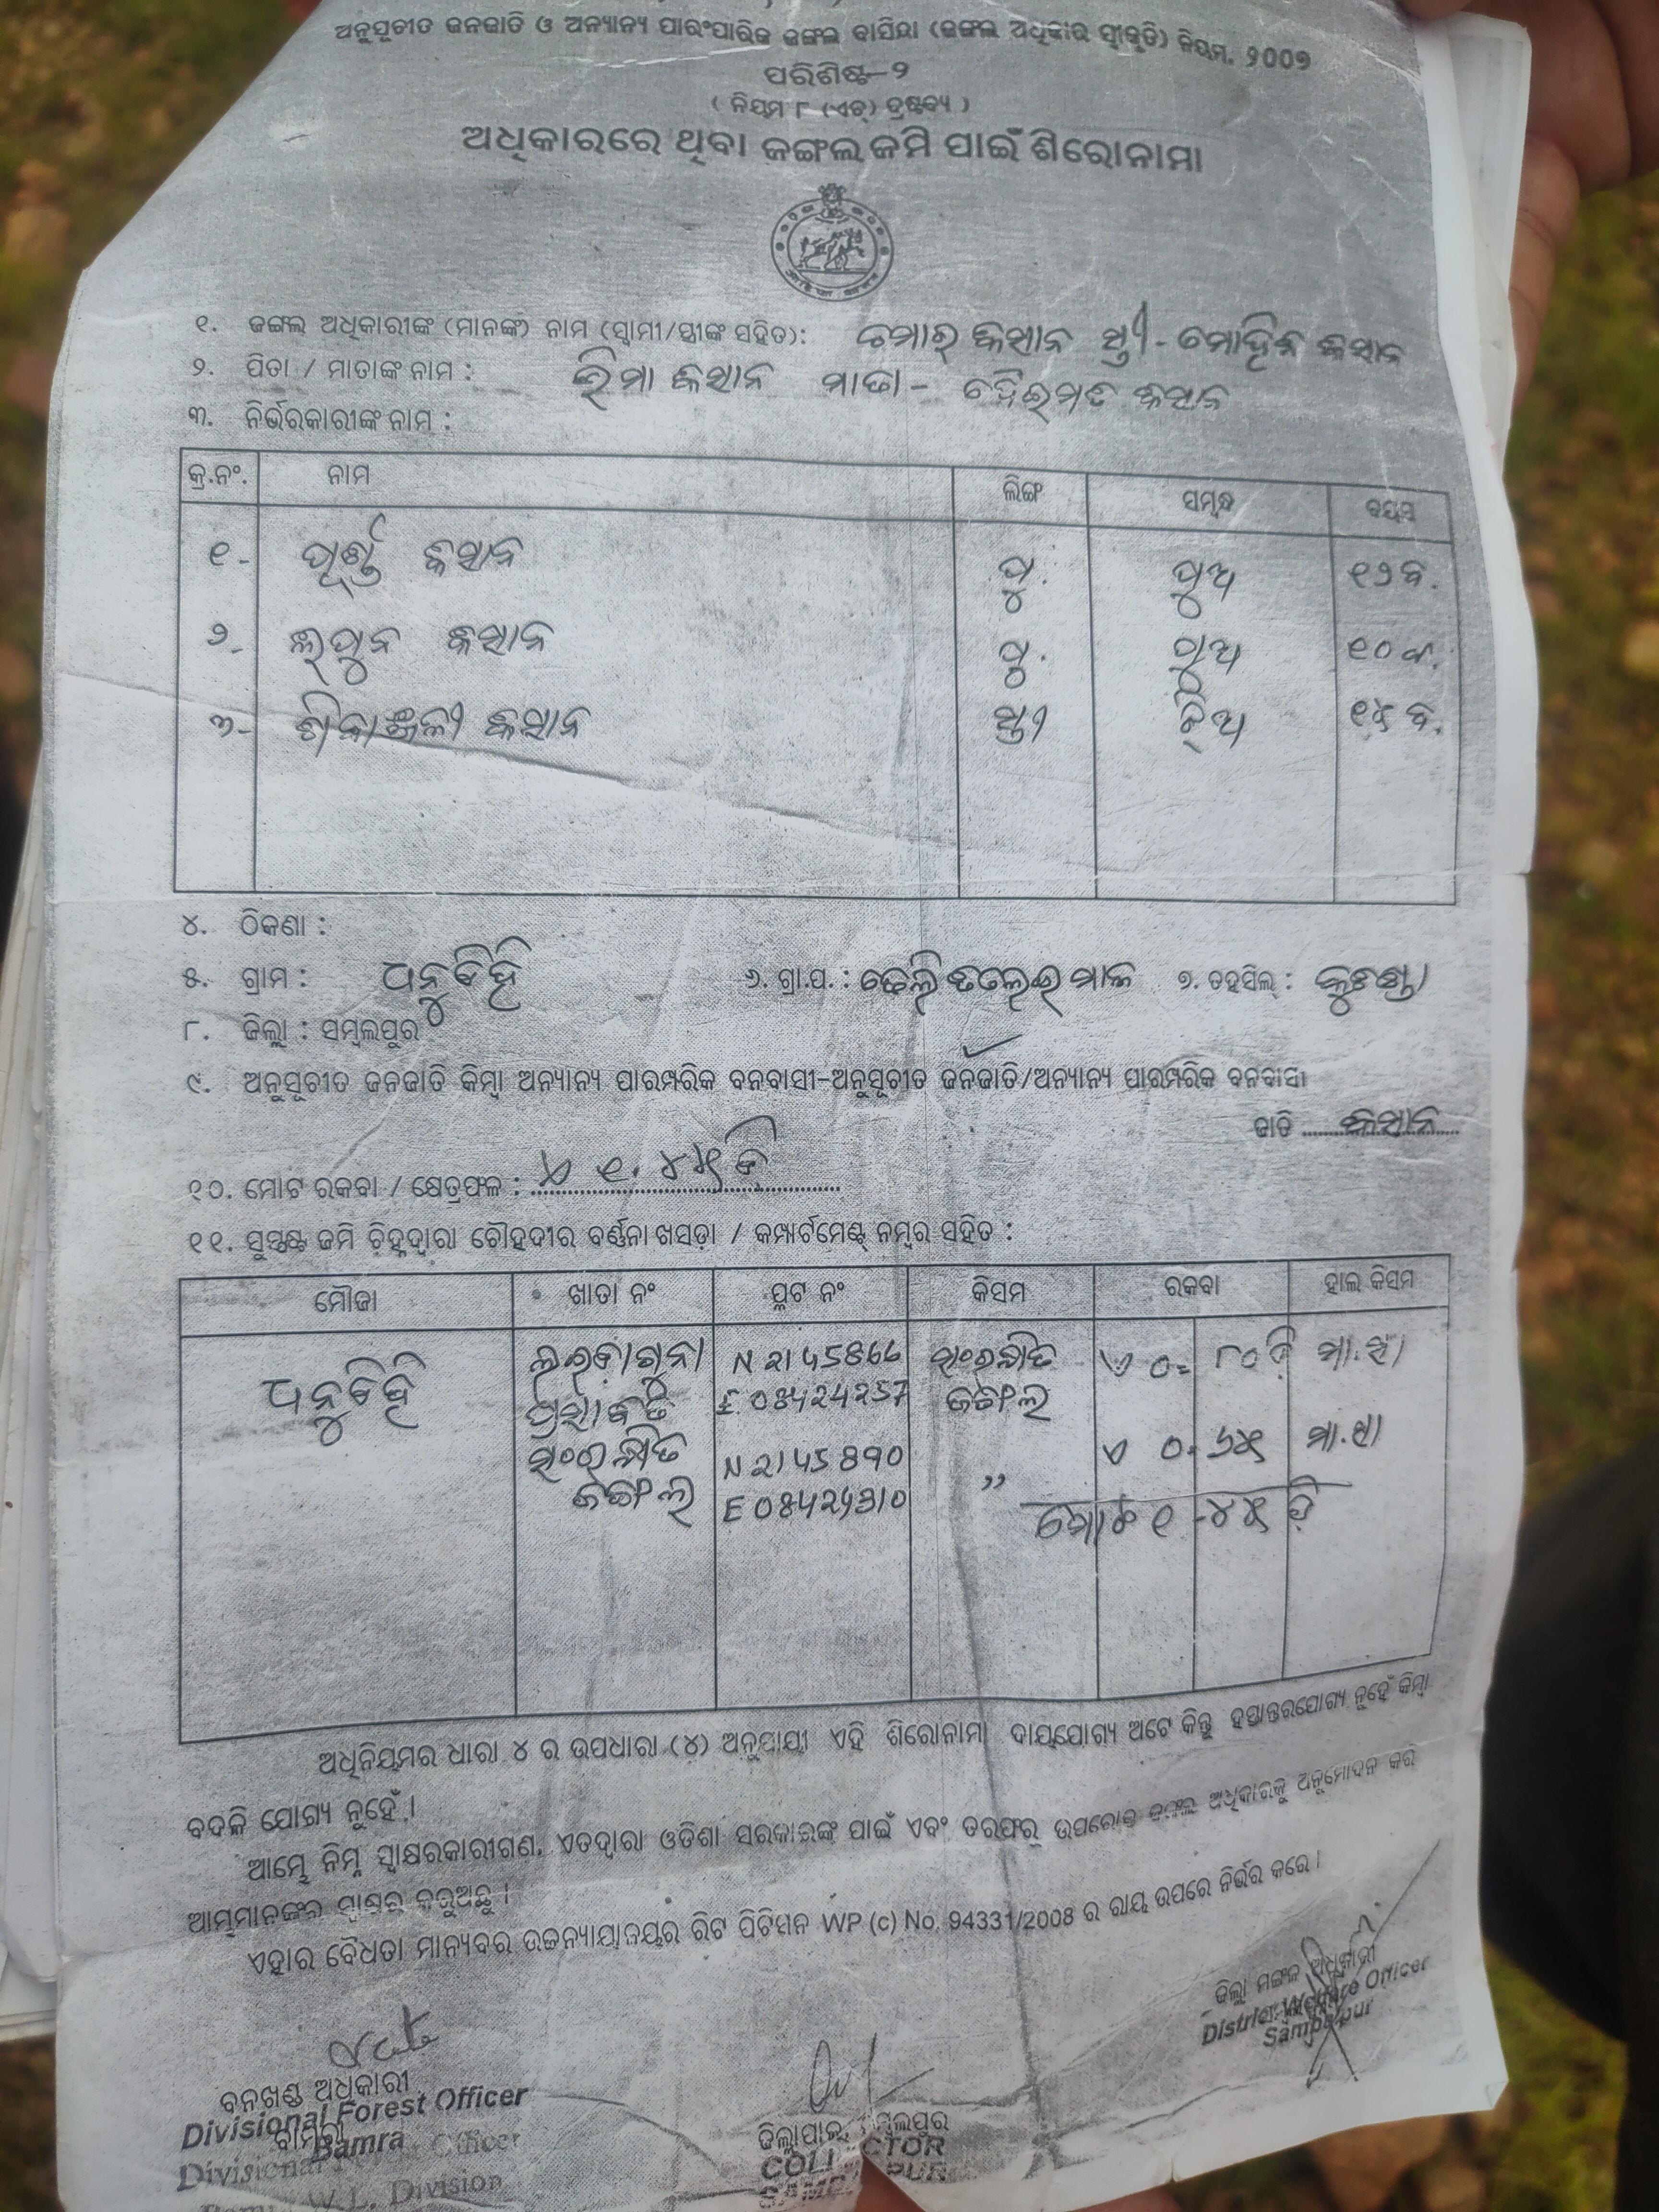 ଅନୁସୂଚୀତ ଜନଜାତି ଓ ଅନ୍ୟାନ୍ୟ ପାରଂପାରିକ ଜଙ୍ଗଲ ବାସିନ୍ଦା (ଜଙ୍ଗଲ ଅଧିକାର ସ୍ୱୀକୃତି) ନିୟମ, ୨୦୦୭
ପରିଶିଷ୍ଟ-୨
( ନିୟମ ୮ (ଏଚ୍) ଦ୍ରଷ୍ଟବ୍ୟ )
ଅଧିକାରରେ ଥିବା ଜଙ୍ଗଲ ଜମି ପାଇଁ ଶିରୋନାମା
୧. ଜଙ୍ଗଲ ଅଧିକାରୀଙ୍କ (ମାନଙ୍କ) ନାମ (ସ୍ୱାମୀ/ସ୍ତ୍ରୀଙ୍କ ସହିତ): ଚମାର୍ କିସାନ ସ୍ତ୍ରୀ- କିସାନ
୨. ପିତା / ମାତାଙ୍କ ନାମ : ଭିମା କିସାନ ମାତା- କିସାନ
୩. ନିର୍ଭରକାରୀଙ୍କ ନାମ :
କ୍ର.ନଂ. ନାମ ଲିଙ୍ଗ ସମ୍ବନ୍ଧ ବୟସ
୧- ପୂର୍ଣ୍ଣ କିସାନ ପୁ. ପୁଅ ୧୨ବ.
୨- କିସାନ ପୁ. ପୁଅ ୧୦ବ.
୩- କିସାନ ସ୍ତ୍ରୀ ଝିଅ ୧୫ ବ.
୪. ଠିକଣା :
୫. ଗ୍ରାମ : ଧନୁଡିହି ୬. ଗ୍ରା.ପ. : ୭. ତହସିଲ୍ : କୁଚିଣ୍ଡା
୮. ଜିଲ୍ଲା : ସମ୍ବଲପୁର
୯. ଅନୁସୂଚୀତ ଜନଜାତି କିମ୍ବା ଅନ୍ୟାନ୍ୟ ପାରମ୍ପରିକ ବନବାସୀ-ଅନୁସୂଚୀତ ଜନଜାତି/ଅନ୍ୟାନ୍ୟ ପାରମ୍ପରିକ ବନବାସୀ
ଜାତି କିସାନ
୧୦. ମୋଟ ରକବା / କ୍ଷେତ୍ରଫଳ : ଏ ୧.୪୫ ଡି
୧୧. ସୁସ୍ପଷ୍ଟ ଜମି ଚିହ୍ନଦ୍ୱାରା ଚୌହଦୀର ବର୍ଣ୍ଣନା ଖସଡ଼ା / କମ୍ପାର୍ଟମେଣ୍ଟ୍ ନମ୍ବର ସହିତ :
ମୌଜା ଖାତା ନଂ ପ୍ଳଟ ନଂ କିସମ ରକବା ହାଲ କିସମ
ଧନୁଡିହି N 2145866 ସଂରକ୍ଷିତ ଏ ୦= ୮୦ ଡି ମା.ଖା
ପ୍ରସ୍ତାବିତ E 08424257 ଜଙ୍ଗଲ
ସଂରକ୍ଷିତ N 2145890 ଏ ୦. ୬୫ ମା.ଖା
ଜଙ୍ଗଲ E 08424310 ,,
ମୋଟ ୧ -୪୫ ଡି
ଅଧିନିୟମର ଧାରା ୪ ର ଉପଧାରା (୪) ଅନୁଯାୟୀ ଏହି ଶିରୋନାମା ଦାୟଯୋଗ୍ୟ ଅଟେ କିନ୍ତୁ ହସ୍ତାନ୍ତରଯୋଗ୍ୟ ନୁହେଁ କିମ୍ବା
ବଦଳି ଯୋଗ୍ୟ ନୁହେଁ ।
ଆମ୍ଭେ ନିମ୍ନ ସ୍ୱାକ୍ଷରକାରୀଗଣ, ଏତଦ୍ୱାରା ଓଡିଶା ସରକାରଙ୍କ ପାଇଁ ଏବଂ ତରଫରୁ ଉପରୋକ୍ତ ଜଙ୍ଗଲ ଅଧିକାରକୁ ଅନୁମୋଦନ କରି
ଆମ୍ଭମାନଙ୍କର ସ୍ୱାକ୍ଷର କରୁଅଛୁ ।
ଏହାର ବୈଧତା ମାନ୍ୟବର ଉଚ୍ଚନ୍ୟାୟାଳୟର ରିଟ ପିଟିସନ WP (c) No. 94331/2008 ର ରାୟ ଉପରେ ନିର୍ଭର କରେ ।
ଜିଲ୍ଲା ମଙ୍ଗଳ ଅଧିକାରୀ
District Welfare Officer
Sambalpur
ବନଖଣ୍ଡ ଅଧିକାରୀ
Divisional Forest Officer
ବାମରା
Bamra
Divisional Officer
W.L. Division